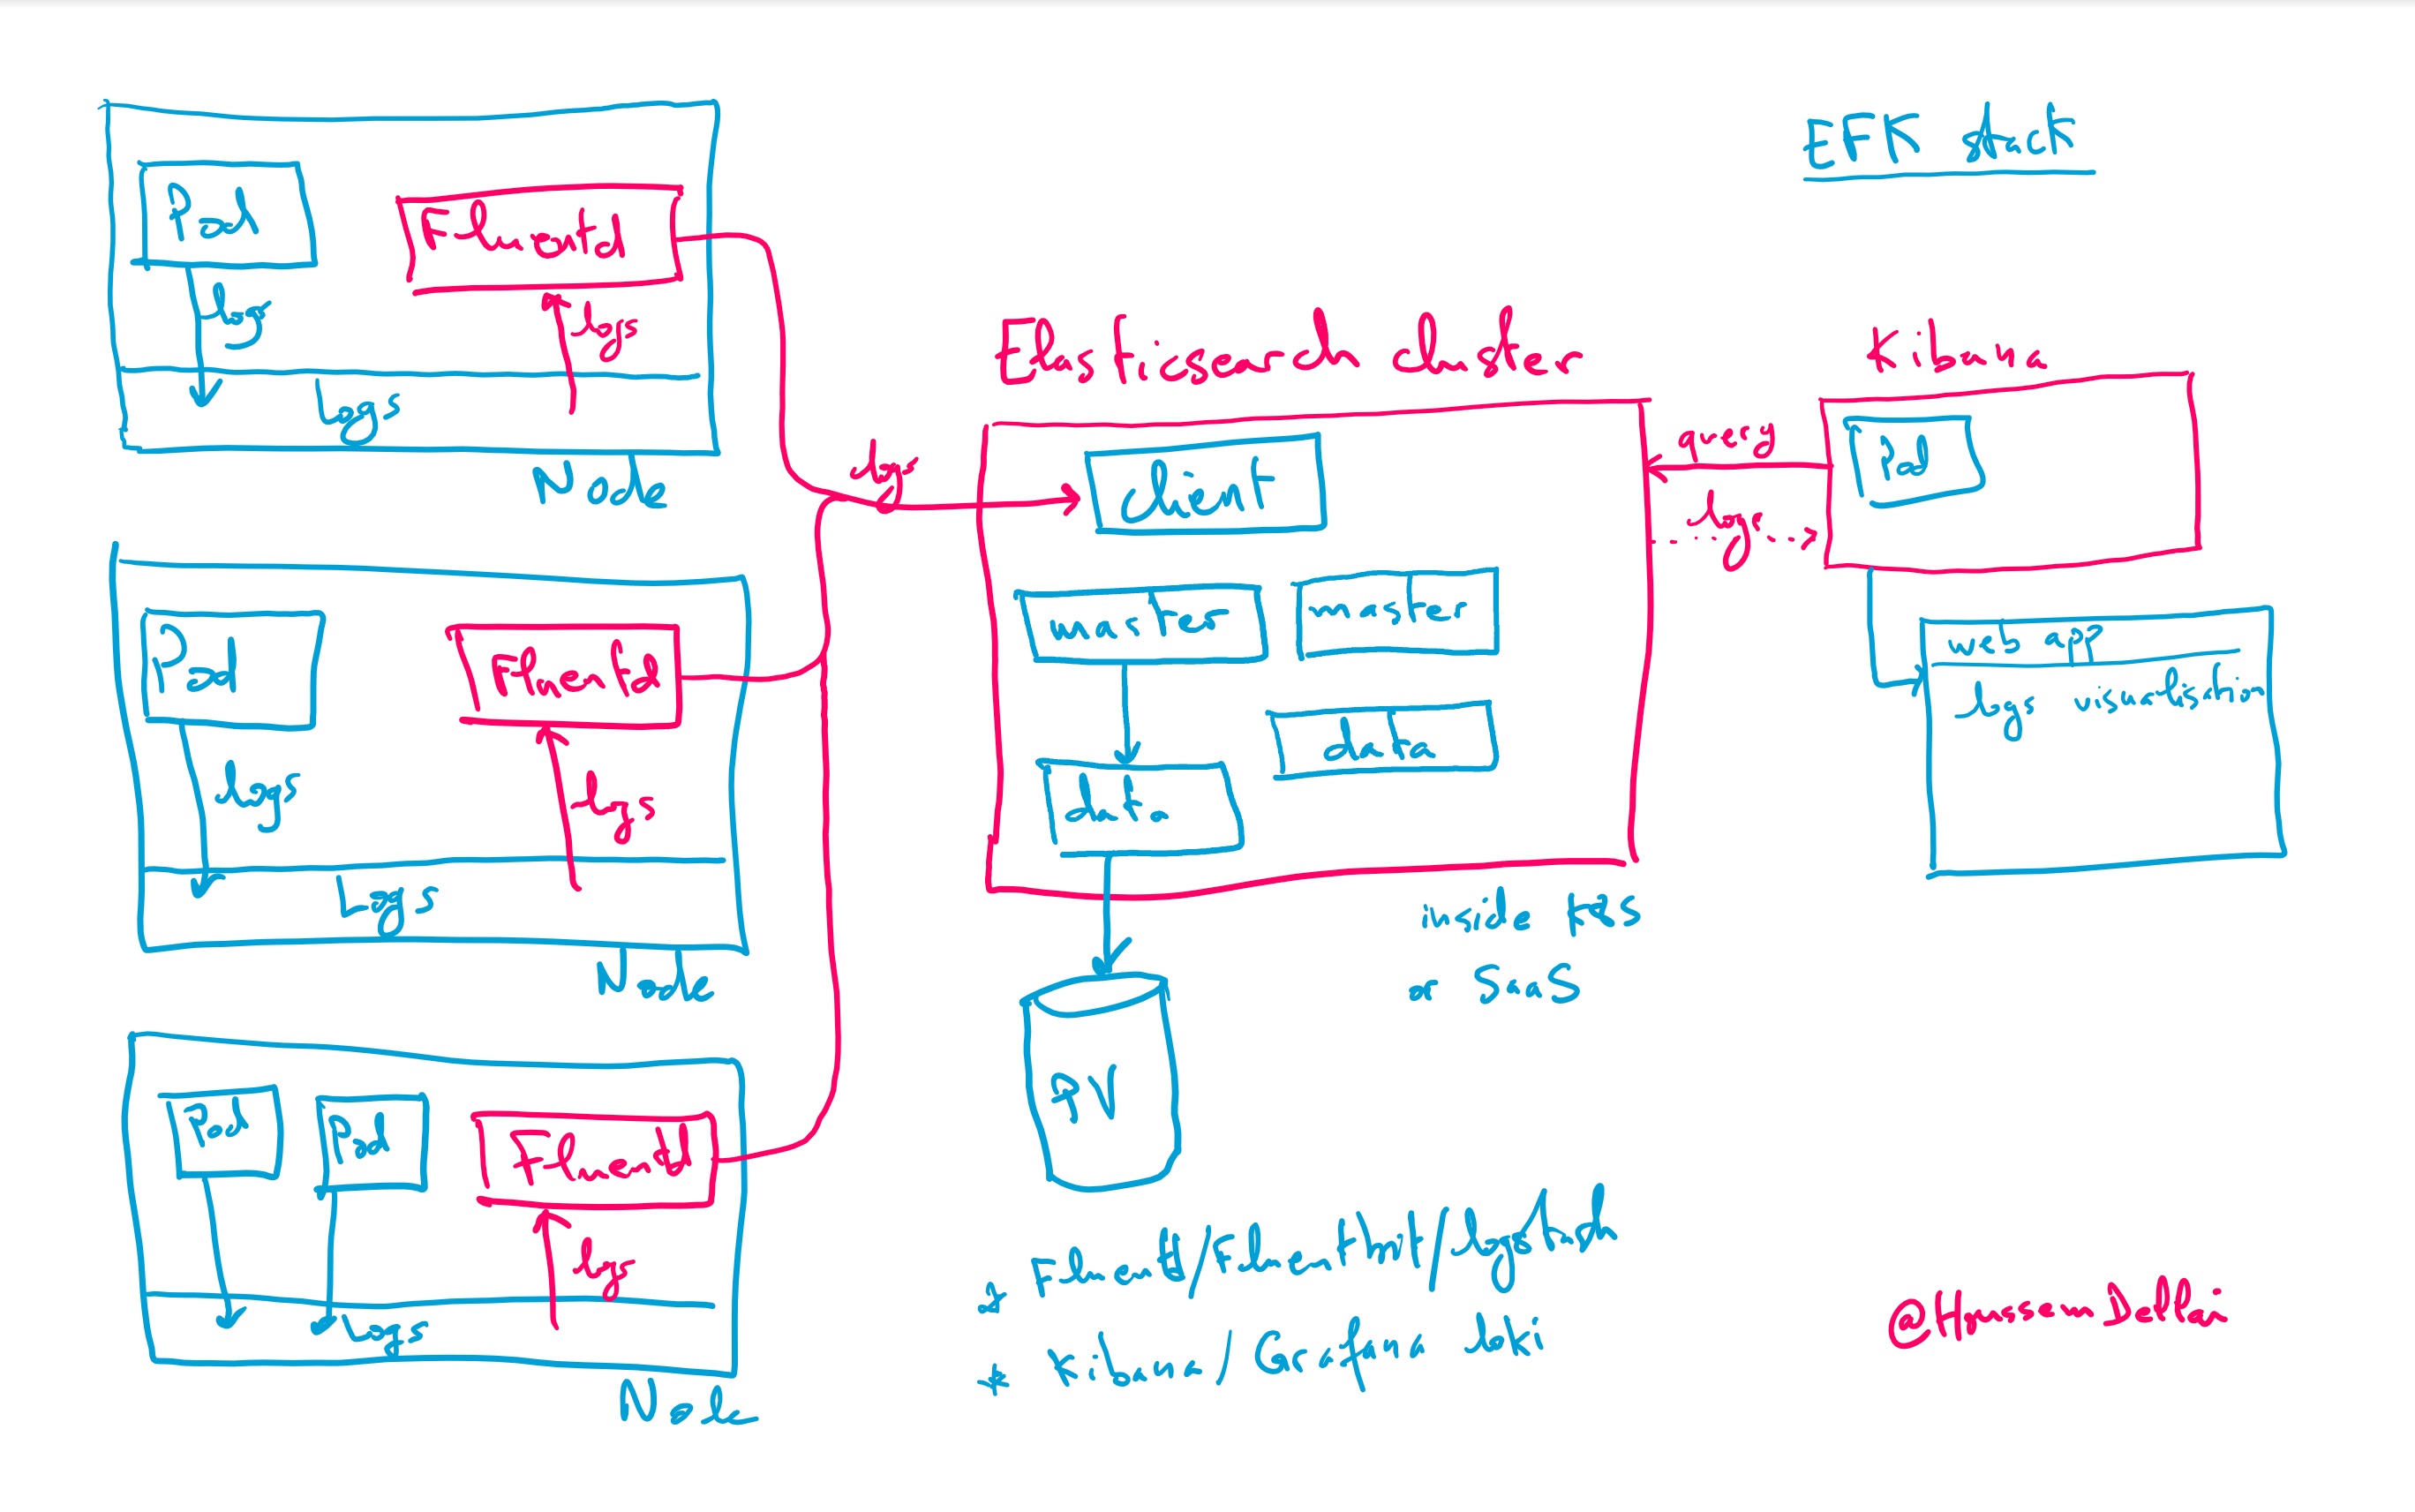 EFK stack
Pod
Fluentd
logs
logs
Logs
Node
Pod
Fluentd
logs
logs
Logs
Node
Pod
Pod
Fluentd
logs
Logs
Node
logs
Elasticsearch cluster
client
master
master
data
data
PV
inside K8S
or SaaS
Kibana
Pod
query
logs
web app
logs visualisation
* Fluentd/Fluentbit/Logstash
* Kibana/Grafana Loki
@HoussemDellai